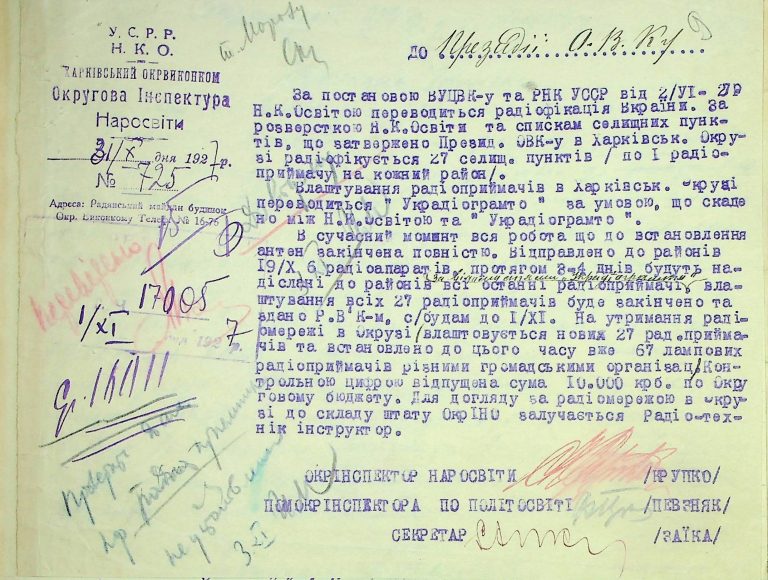 У.С.Р.Р.
Н.К.О.
ХАРКІВСЬКИЙ ОКРВИКОНКОМ
Округова Інспектура
Наросвіти
31/X дня 1927 р.
№ 725
Адреса: Радянський майдан будинок
Окр. Виконкому Телеф. № 16-76
т. Морозу
До Президії О.В.Ку
За постановою ВУЦВК-у та РНК УССР від 2/VI- 27р
Н.К.Освітою переводиться радіофікація Вкраїни. За
розверсткою Н.К.Освіти та спискам селищних пунк-
тів, що затвержено Презид. ОВК-у в Харківськ. Окру-
зі радіфікується 27 селищ. пунктів / по І радіо-
приймачу на кожний район/.
Влаштування радіоприймачів в Харківськ. окрузі
переводиться " Украдіограмто " за умовою, що скаде
но між Н.К.освітою та " Украдіограмто ".
В сучасний момінт вся робота що до встановлення
антен закінчена повністю. Відправлено до районів
І9/Х 6 радіоапаратів, протягом 3-4 днів будуть на-
діслані до районів всі останні радіоприймачі, вла-
штування всіх 27 радіоприймачів буде закінчено та
здано Р.В К-м, с/будам до І/ХІ. На утримання раді-
омережі в Окрузі/влаштовується нових 27 рад.прийма-
чів та встановлено до цього часу вже 67 лампових
радіоприймачів різними громадськими організац/Кон-
трольною цифрою відпущена сума І0.000 крб. по Окру
говому бюджету. Для догляду за радіомережою в окру-
зі до складу штату ОкрІНО залучається Радіо-тех-
нік інструктор.
17005
1/XI 7
ОКРІНСПЕКТОР НАРОСВІТИ /КРУПКО/
ПОМОКРІНСПЕКТОРА ПО ПОЛІТОСВІТІ /ПЕВЗНЯК/
СЕКРЕТАР /ЗАЇКА/
3-XI